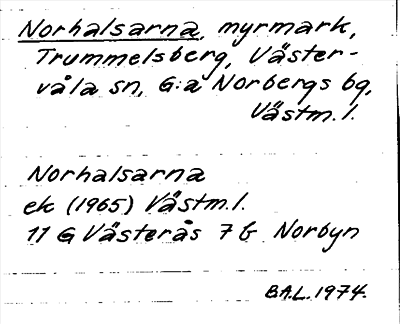 Norhalsarna, myrmark,
Trummelsberg, Väster-
våla sn, G:a Norbergs bg,
Västm. l.
Norhalsarna
ek (1965) Västm. l.
11 G Västerås 7 G Norbyn
B.A.L. 1974.